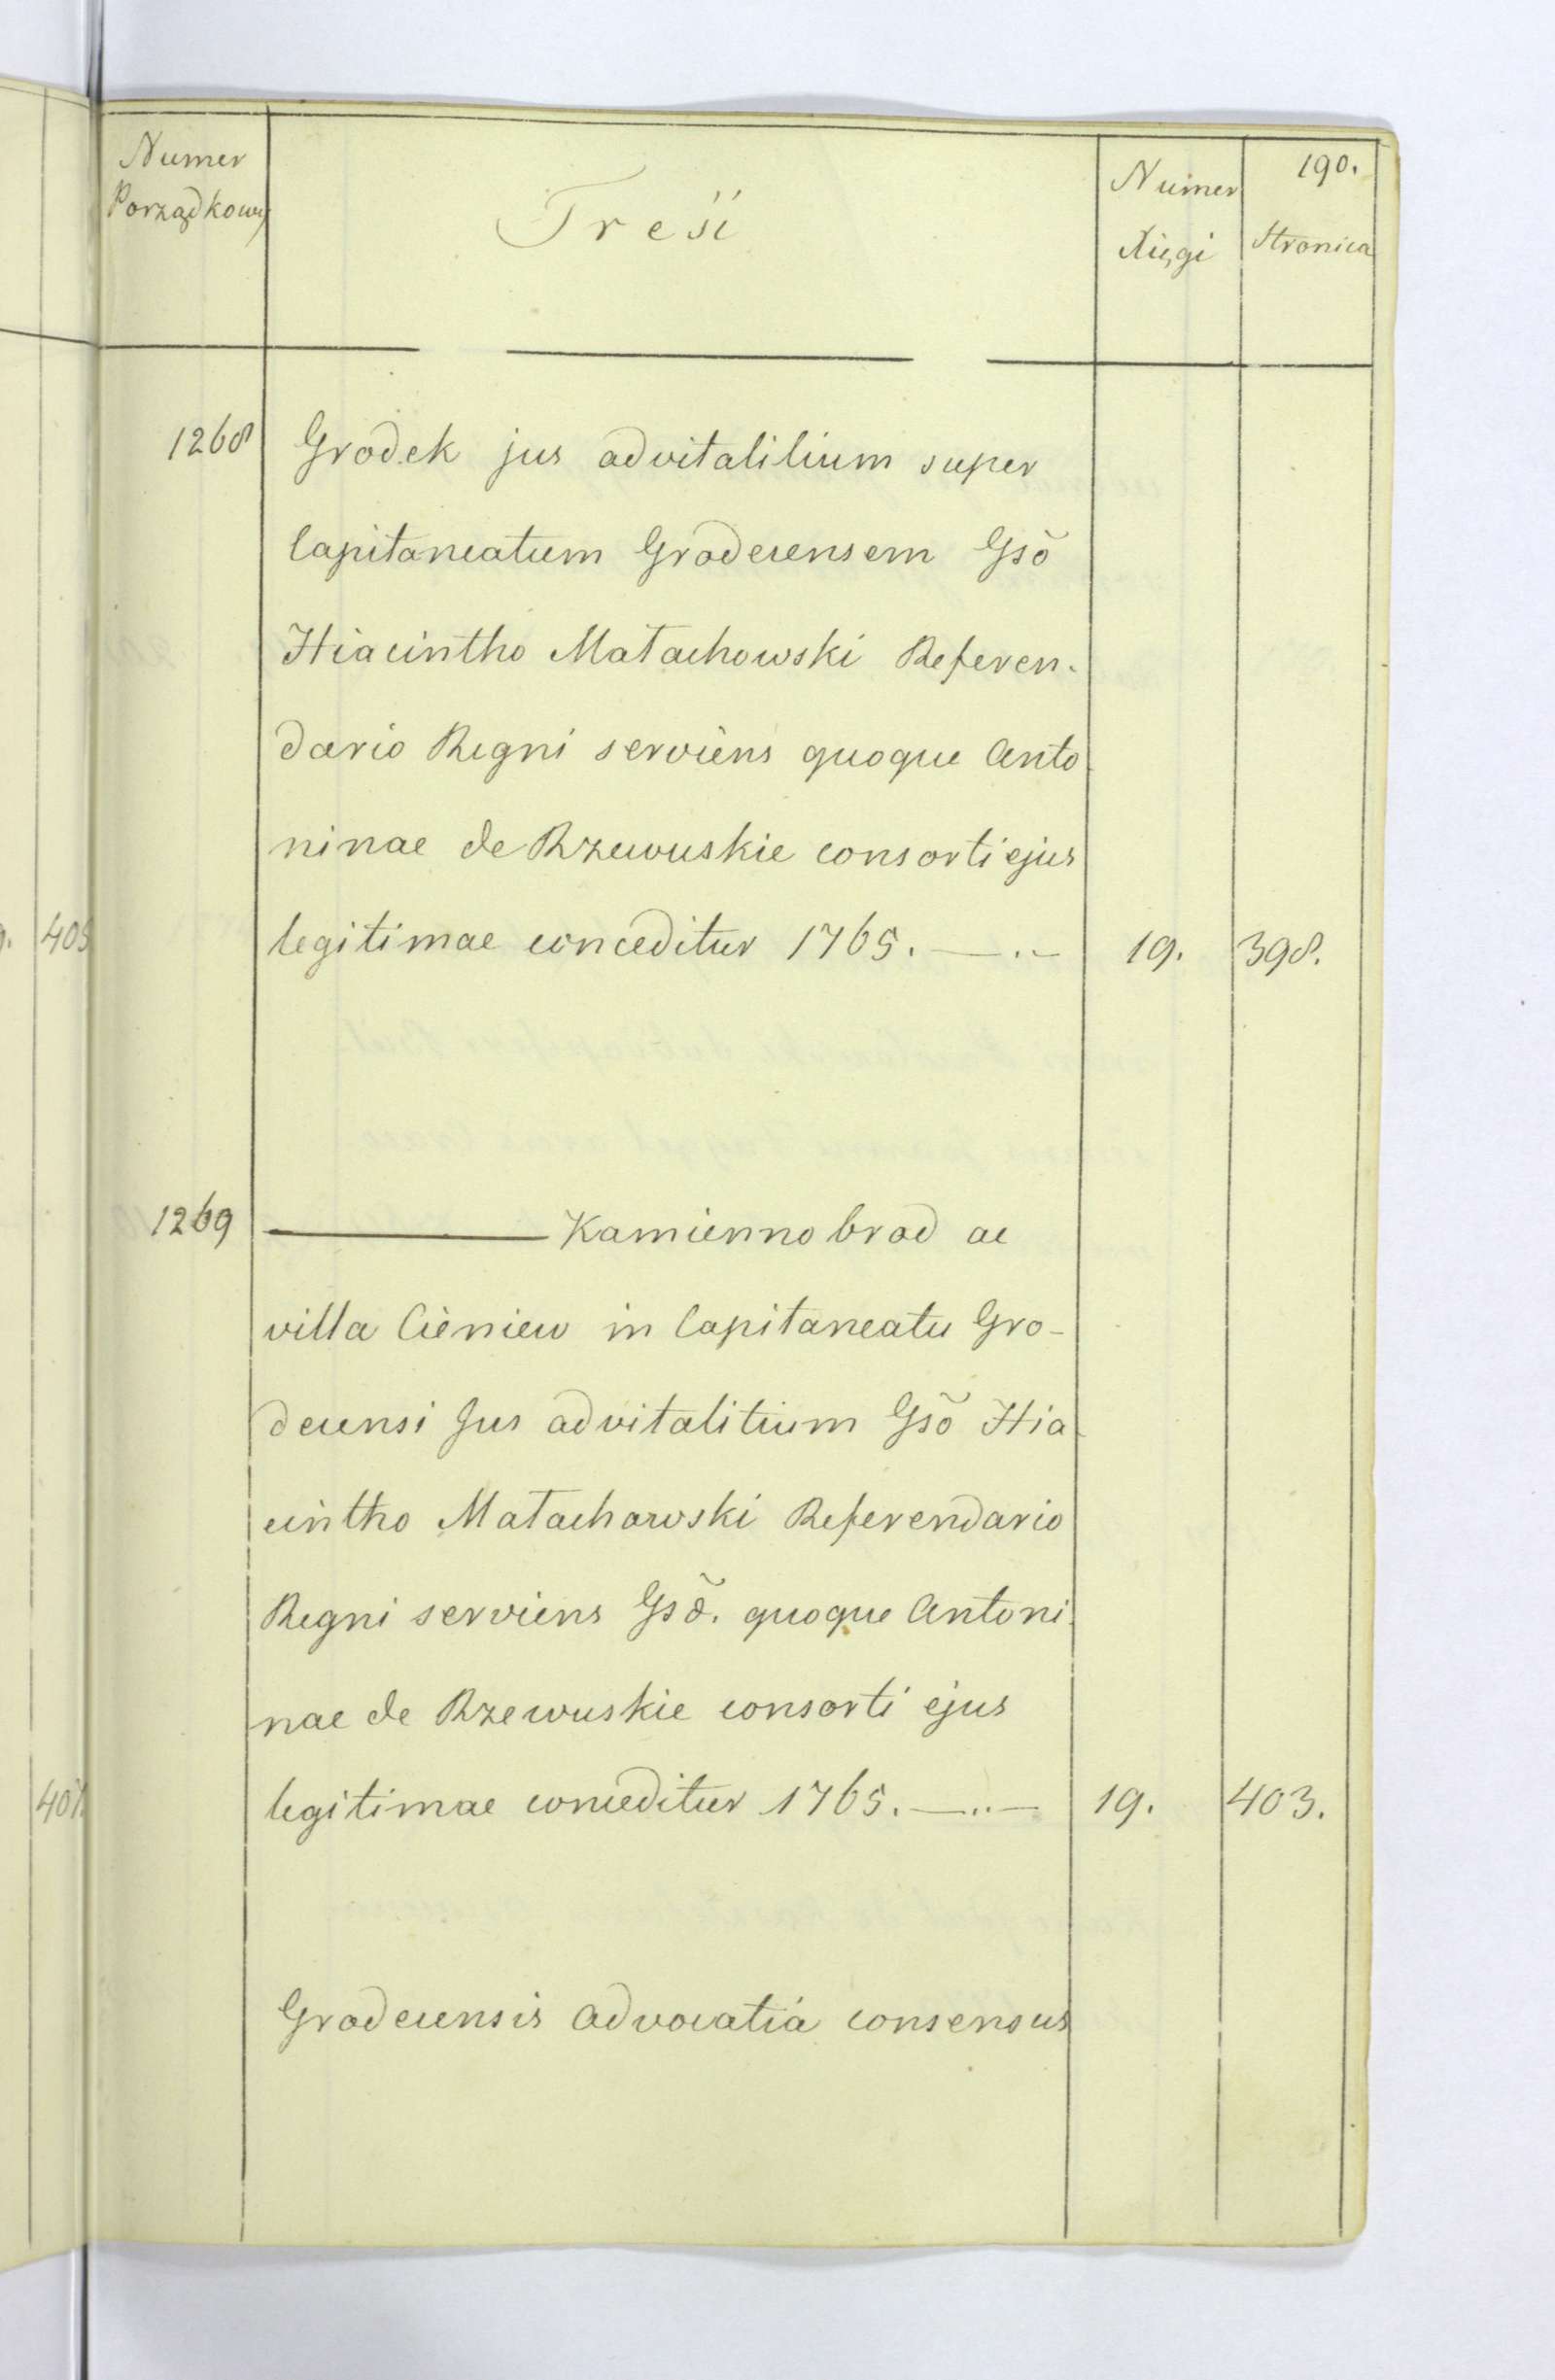 190.
Numer Porządkowy
Treść
Numer Xięgi
Stronica
1268 Grodek jus advitalilium super
Capitaneatum Grodecensem Gsõ
Hiacintho Małachowski Referen-
dario Regni serviens quoque Anto
ninae de Rzewuskie consorti ejus
legitimae conceditur 1765. 19. 398.
1269 Kamiennobrod ac
villa Cieniew in Capitaneatu Gro-
decensi Jus advitalitium Gsõ Hia
cintho Małachowski Referendario
Regni serviens Gsõ. quoque Antoni
nae de Rzewuskie consorti ejus
legitimae conceditur 1765. 19. 403.
Grodecensis Advocatia consensus